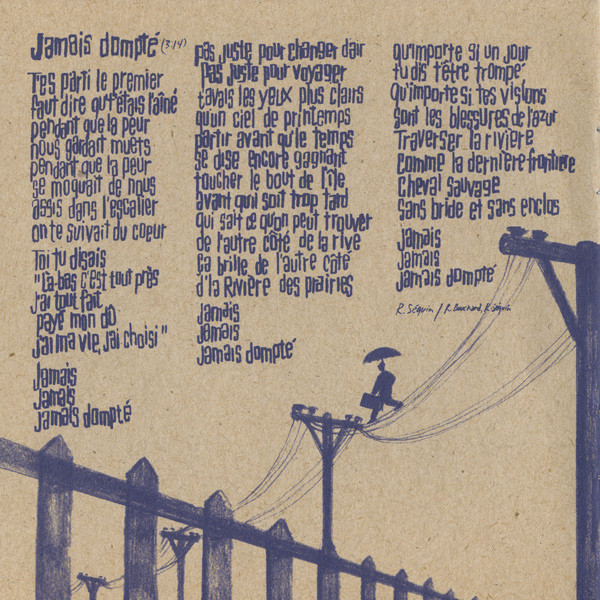 Jamais dompté (3:14)
T'es parti le premier
faut dire qu't'étais l'aîné
pendant que la peur
nous gardait muets
pendant que la peur
se moquait de nous
assis dans l'escalier
on te suivait du coeur
Toi tu disais
"Là-bas c'est tout près
j'ai tout fait
payé mon dû
j'ai ma vie, j'ai choisi"
Jamais
Jamais
Jamais dompté
pas juste pour changer d'air
pas juste pour voyager
t'avais les yeux plus clairs
qu'un ciel de printemps
partir avant qu'le temps
se dise encore gagnant
toucher le bout de l'île
avant qu'il soit trop tard
qui sait ce qu'on peut trouver
de l'autre côté de la rive
ça brille de l'autre côté
d'la Rivière des prairies
Jamais
Jamais
Jamais dompté
Qu'importe si un jour
tu dis t'être trompé
Qu'importe si tes visions
sont les blessures de l'azur
Traverser la rivière
comme la dernière frontière
Cheval sauvage
sans bride et sans enclos
Jamais
Jamais
Jamais dompté
R. Séguin / R. Bouchard, R. Séguin